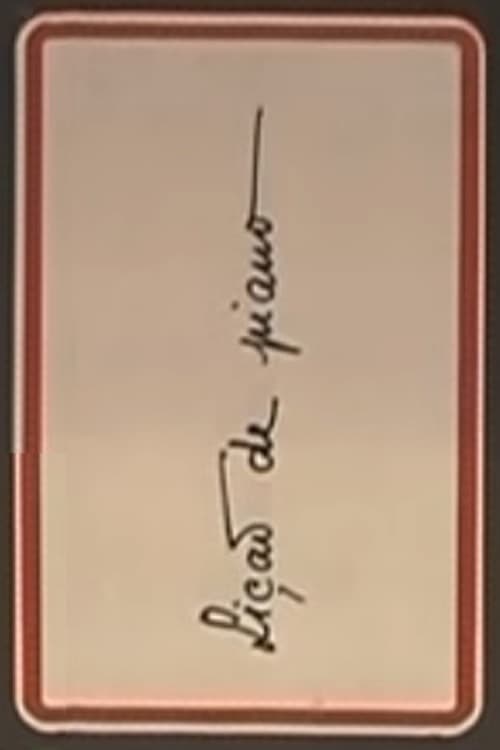 Lição de piano